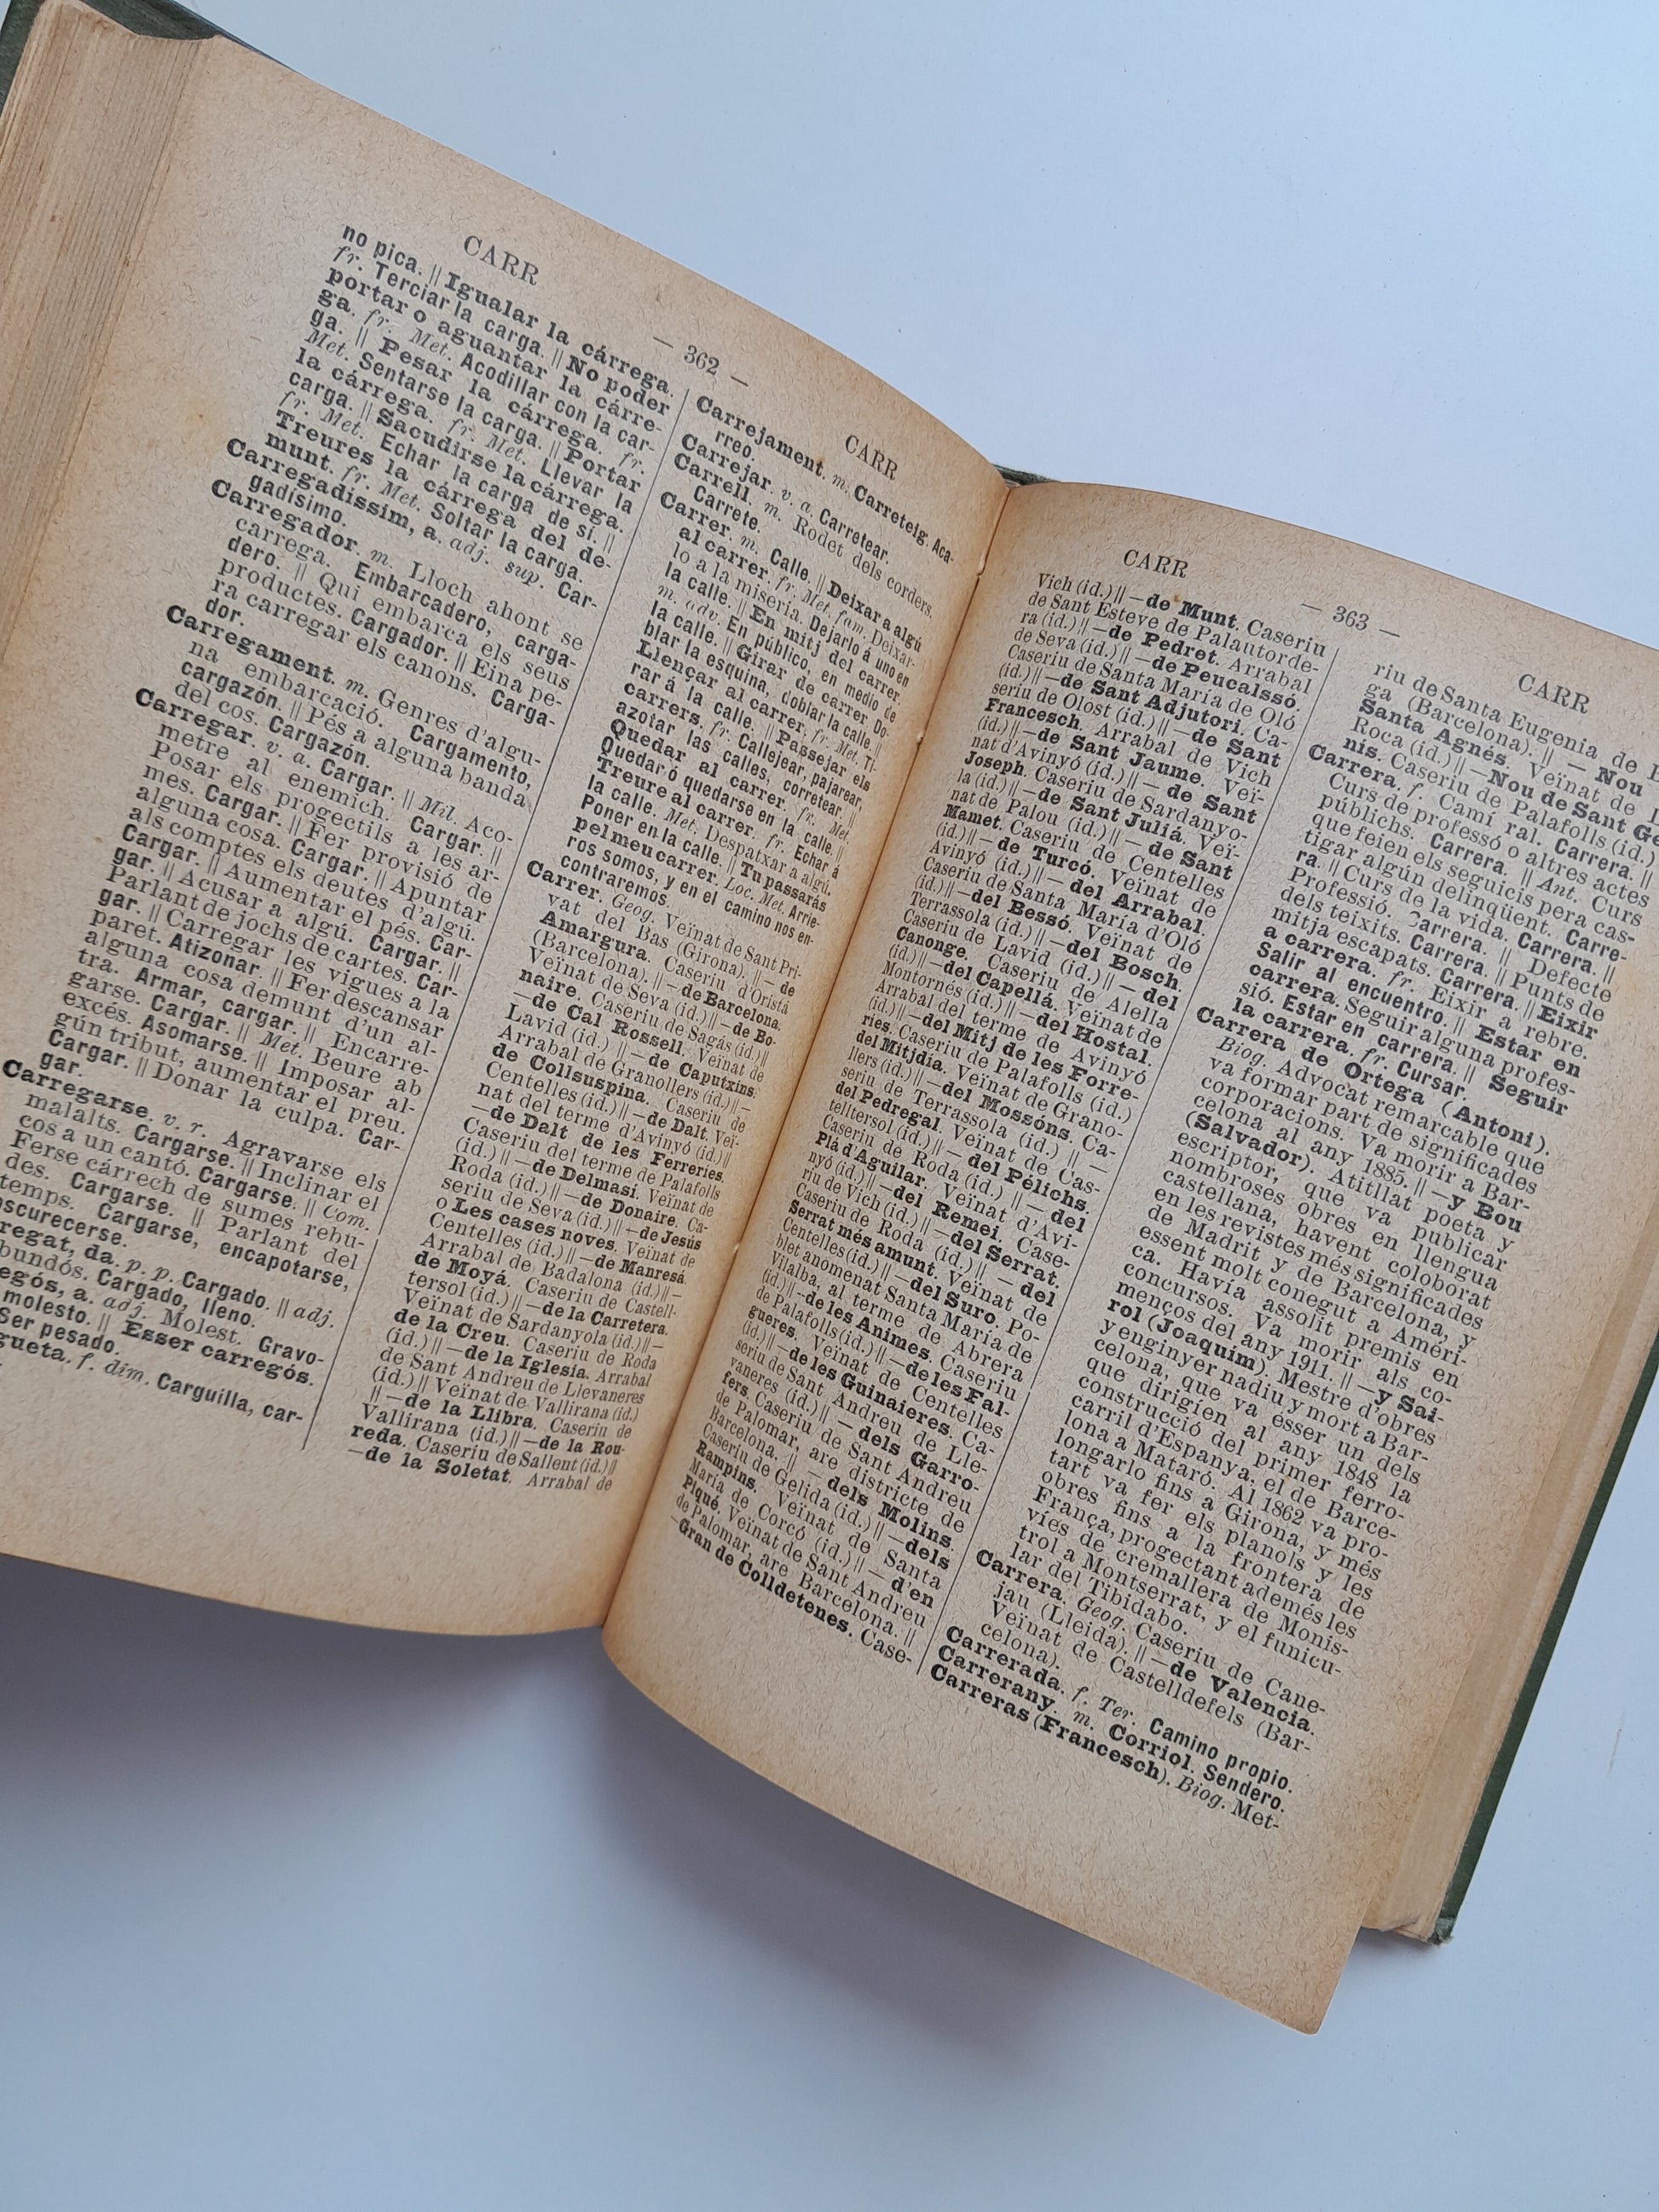 CARR
— 362 —
CARR
no pica. || Igualar la cárrega.
fr. Terciar la carga. || No poder
portar o aguantar la cárre-
ga. fr. Met. Acodillar con la car-
ga. || Pesar la cárrega. fr.
Met. Sentarse la carga. || Portar
la cárrega. fr. Met. Llevar la
carga. || Sacudirse la cárrega.
fr. Met. Echar la carga de sí. ||
Treures la cárrega del de-
munt. fr. Met. Soltar la carga.
Carregadíssim, a. adj. sup. Car-
gadísimo.
Carregador. m. Lloch ahont se
carrega. Embarcadero, carga-
dero. || Qui embarca els seus
productes. Cargador. || Eina pe-
ra carregar els canons. Carga-
dor.
Carregament. m. Genres d'algu-
na embarcació. Cargamento,
cargazón. || Pés a alguna banda
del cos. Cargazón.
Carregar. v. a. Cargar. || Mil. Aco-
metre al enemich. Cargar. ||
Posar els progectils a les ar-
mes. Cargar. || Fer provisió de
alguna cosa. Cargar. || Apuntar
als comptes els deutes d'algú.
Cargar. || Aumentar el pés. Car-
gar. || Acusar a algú. Cargar. ||
Parlant de jochs de cartes. Car-
gar. || Carregar les vigues a la
paret. Atizonar. || Fer descansar
alguna cosa demunt d'un al-
tra. Armar, cargar. || Encarre-
garse. Cargar. || Met. Beure ab
excés. Asomarse. || Imposar al-
gún tribut, aumentar el preu.
Cargar. || Donar la culpa. Car-
gar.
Carregarse. v. r. Agravarse els
malalts. Cargarse. || Inclinar el
cos a un cantó. Cargarse. || Com.
Ferse cárrech de sumes rebu-
des. Cargarse. || Parlant del
temps. Cargarse, encapotarse,
obscurecerse.
regat, da. p. p. Cargado. || adj.
bundós. Cargado, lleno.
egós, a. adj. Molest. Gravo-
molesto. || Esser carregós.
Ser pesado.
gueta. f. dim. Carguilla, car-
Carrejament. m. Carreteig. Aca-
rreo.
Carrejar. v. a. Carretear.
Carrell. m. Rodet dels corders.
Carrete.
Carrer. m. Calle. || Deixar a algú
al carrer. fr. Met. fam. Deixar-
lo a la miseria. Dejarlo á uno en
la calle. || En mitj del carrer.
m. adv. En público, en medio de
la calle. || Girar de carrer. Do-
blar la esquina, doblar la calle. ||
Llençar al carrer. fr. Met. Ti-
rar á la calle. || Passejar els
carrers. fr. Callejear, pajarear,
azotar las calles, corretear. ||
Quedar al carrer. fr. Met.
Quedar ó quedarse en la calle. ||
Treure al carrer. fr. Echar á
la calle. Met. Despatxar a algú.
Poner en la calle. || Tu passarás
pel meu carrer. Loc. Met. Arrie-
ros somos, y en el camino nos en-
contraremos.
Carrer. Geog. Veïnat de Sant Pri-
vat del Bas (Girona). || — de
Amargura. Caseriu d'Oristá
(Barcelona). || —de Barcelona.
Veïnat de Seva (id.) || —de Bo-
naire. Caseriu de Sagás (id.) ||
—de Cal Rossell. Veïnat de
Lavid (id.) || —de Caputxins.
Arrabal de Granollers (id.) || —
de Collsuspina. Caseriu de
Centelles (id.) || —de Dalt. Veï-
nat del terme d'Avinyó (id.) ||
—de Dalt de les Ferreries.
Caseriu del terme de Palafolls
(id.) || —de Delmasi. Veïnat de
Roda (id.) || —de Donaire. Ca-
seriu de Seva (id.) || —de Jesús
o Les cases noves. Veïnat de
Centelles (id.) || —de Manresá.
Arrabal de Badalona (id.) || —
de Moyá. Caseriu de Castell-
tersol (id.) || —de la Carretera.
Veïnat de Sardanyola (id.) || —
de la Creu. Caseriu de Roda
(id.) || —de la Iglesia. Arrabal
de Sant Andreu de Llevaneres
(id.) || Veïnat de Vallirana (id.)
|| —de la Llibra. Caseriu de
Vallirana (id.) || —de la Rou-
reda. Caseriu de Sallent (id.) ||
—de la Soletat. Arrabal de
CARR
— 363 —
CARR
Vich (id.) || —de Munt. Caseriu
de Sant Esteve de Palautorde-
ra (id.) || —de Pedret. Arrabal
de Seva (id.) || —de Peucalssó.
Caseriu de Santa María de Oló
(id.) || —de Sant Adjutori. Ca-
seriu de Olost (id.) || —de Sant
Francesch. Arrabal de Vich
(id.) || —de Sant Jaume. Veï-
nat d'Avinyó (id.) || — de Sant
Joseph. Caseriu de Sardanyo-
la (id.) || —de Sant Juliá. Veï-
nat de Palou (id.) || — de Sant
Mamet. Caseriu de Centelles
(id.) || —de Turcó. Veïnat de
Avinyó (id.) || — del Arrabal.
Caseriu de Santa María d'Oló
(id.) || —del Bessó. Veïnat de
Terrassola (id.) || —del Bosch.
Caseriu de Lavid (id.) || — del
Canonge. Caseriu de Alella
(id.) || —del Capellá. Veïnat de
Montornés (id.) || —del Hostal.
Arrabal del terme de Avinyó
(id.) || —del Mitj de les Forre-
ries. Caseriu de Palafolls (id.)
del Mitjdía. Veïnat de Grano-
llers (id.) || —del Mossóns. Ca-
seriu de Terrassola (id.) || —
del Pedregal. Veïnat de Cas-
telltersol (id.) || — del Pélichs.
Caseriu de Roda (id.) || — del
Plá d'Aguilar. Veïnat d'Avi-
nyó (id.) || —del Remei. Case-
riu de Vich (id.) || —del Serrat.
Caseriu de Roda (id.) || — del
Serrat més amunt. Veïnat de
Centelles (id.) || —del Suro. Po-
blet anomenat Santa María de
Vilalba, al terme de Abrera
(id.) || —de les Animes. Caseriu
de Palafolls (id.) || —de les Fal-
gueres. Veïnat de Centelles
(id.) || —de les Guinaieres. Ca-
seriu de Sant Andreu de Lle-
vaneres (id.) || — dels Garro-
fers. Caseriu de Sant Andreu
de Palomar, are districte de
Barcelona. || — dels Molins.
Caseriu de Gelida (id.) || —dels
Rampins. Veïnat de Santa
María de Corcó (id.) || — d'en
Piqué. Veïnat de Sant Andreu
de Palomar, are Barcelona. ||
—Gran de Colldetenes. Case-
riu de Santa Eugenia de B
ga (Barcelona). || — Nou
Santa Agnés. Veïnat de
Roca (id.) || —Nou de Sant Ge
nis. Caseriu de Palafolls (id.)
Carrera. f. Camí ral. Carrera. ||
Curs de professó o altres actes
públichs. Carrera. || Ant. Curs
que feien els seguicis pera cas-
tigar algún delinqüent. Carre-
ra. || Curs de la vida. Carrera. ||
Professió. Carrera. || Defecte
dels teixits. Carrera. || Punts de
mitja escapats. Carrera. || Eixir
a carrera. fr. Eixir a rebre.
Salir al encuentro. || Estar en
carrera. Seguir alguna profes-
sió. Estar en carrera. || Seguir
la carrera. fr. Cursar.
Carrera de Ortega (Antoni).
Biog. Advocat remarcable que
va formar part de significades
corporacions. Va morir a Bar-
celona al any 1885. || —y Bou
(Salvador). Atitllat poeta y
escriptor, que va publicar
nombroses obres en llengua
castellana, havent coloborat
en les revistes més significades
de Madrit y de Barcelona, y
essent molt conegut a Améri-
ca. Havía assolit premis en
concursos. Va morir als co-
menços del any 1911. || —y Sai-
rol (Joaquim). Mestre d'obres
y enginyer nadiu y mort a Bar-
celona, que va ésser un dels
que dirigíen al any 1848 la
construcció del primer ferro-
carril d'Espanya, el de Barce-
lona a Mataró. Al 1862 va pro-
longarlo fins a Girona, y més
tart va fer els planols y les
obres fins a la frontera de
França, progectant además les
víes de cremallera de Monis-
trol a Montserrat, y el funicu-
lar del Tibidabo.
Carrera. Geog. Caseriu de Cane-
jau (Lleida). || —de Valencia.
Veïnat de Castelldefels (Bar-
celona).
Carrerada. f. Ter. Camino propio.
Carrerany. m. Corriol. Sendero.
Carreras (Francesch). Biog. Met-